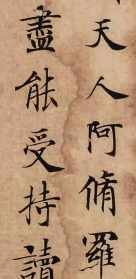 天人阿脩羅
盡能受持讀